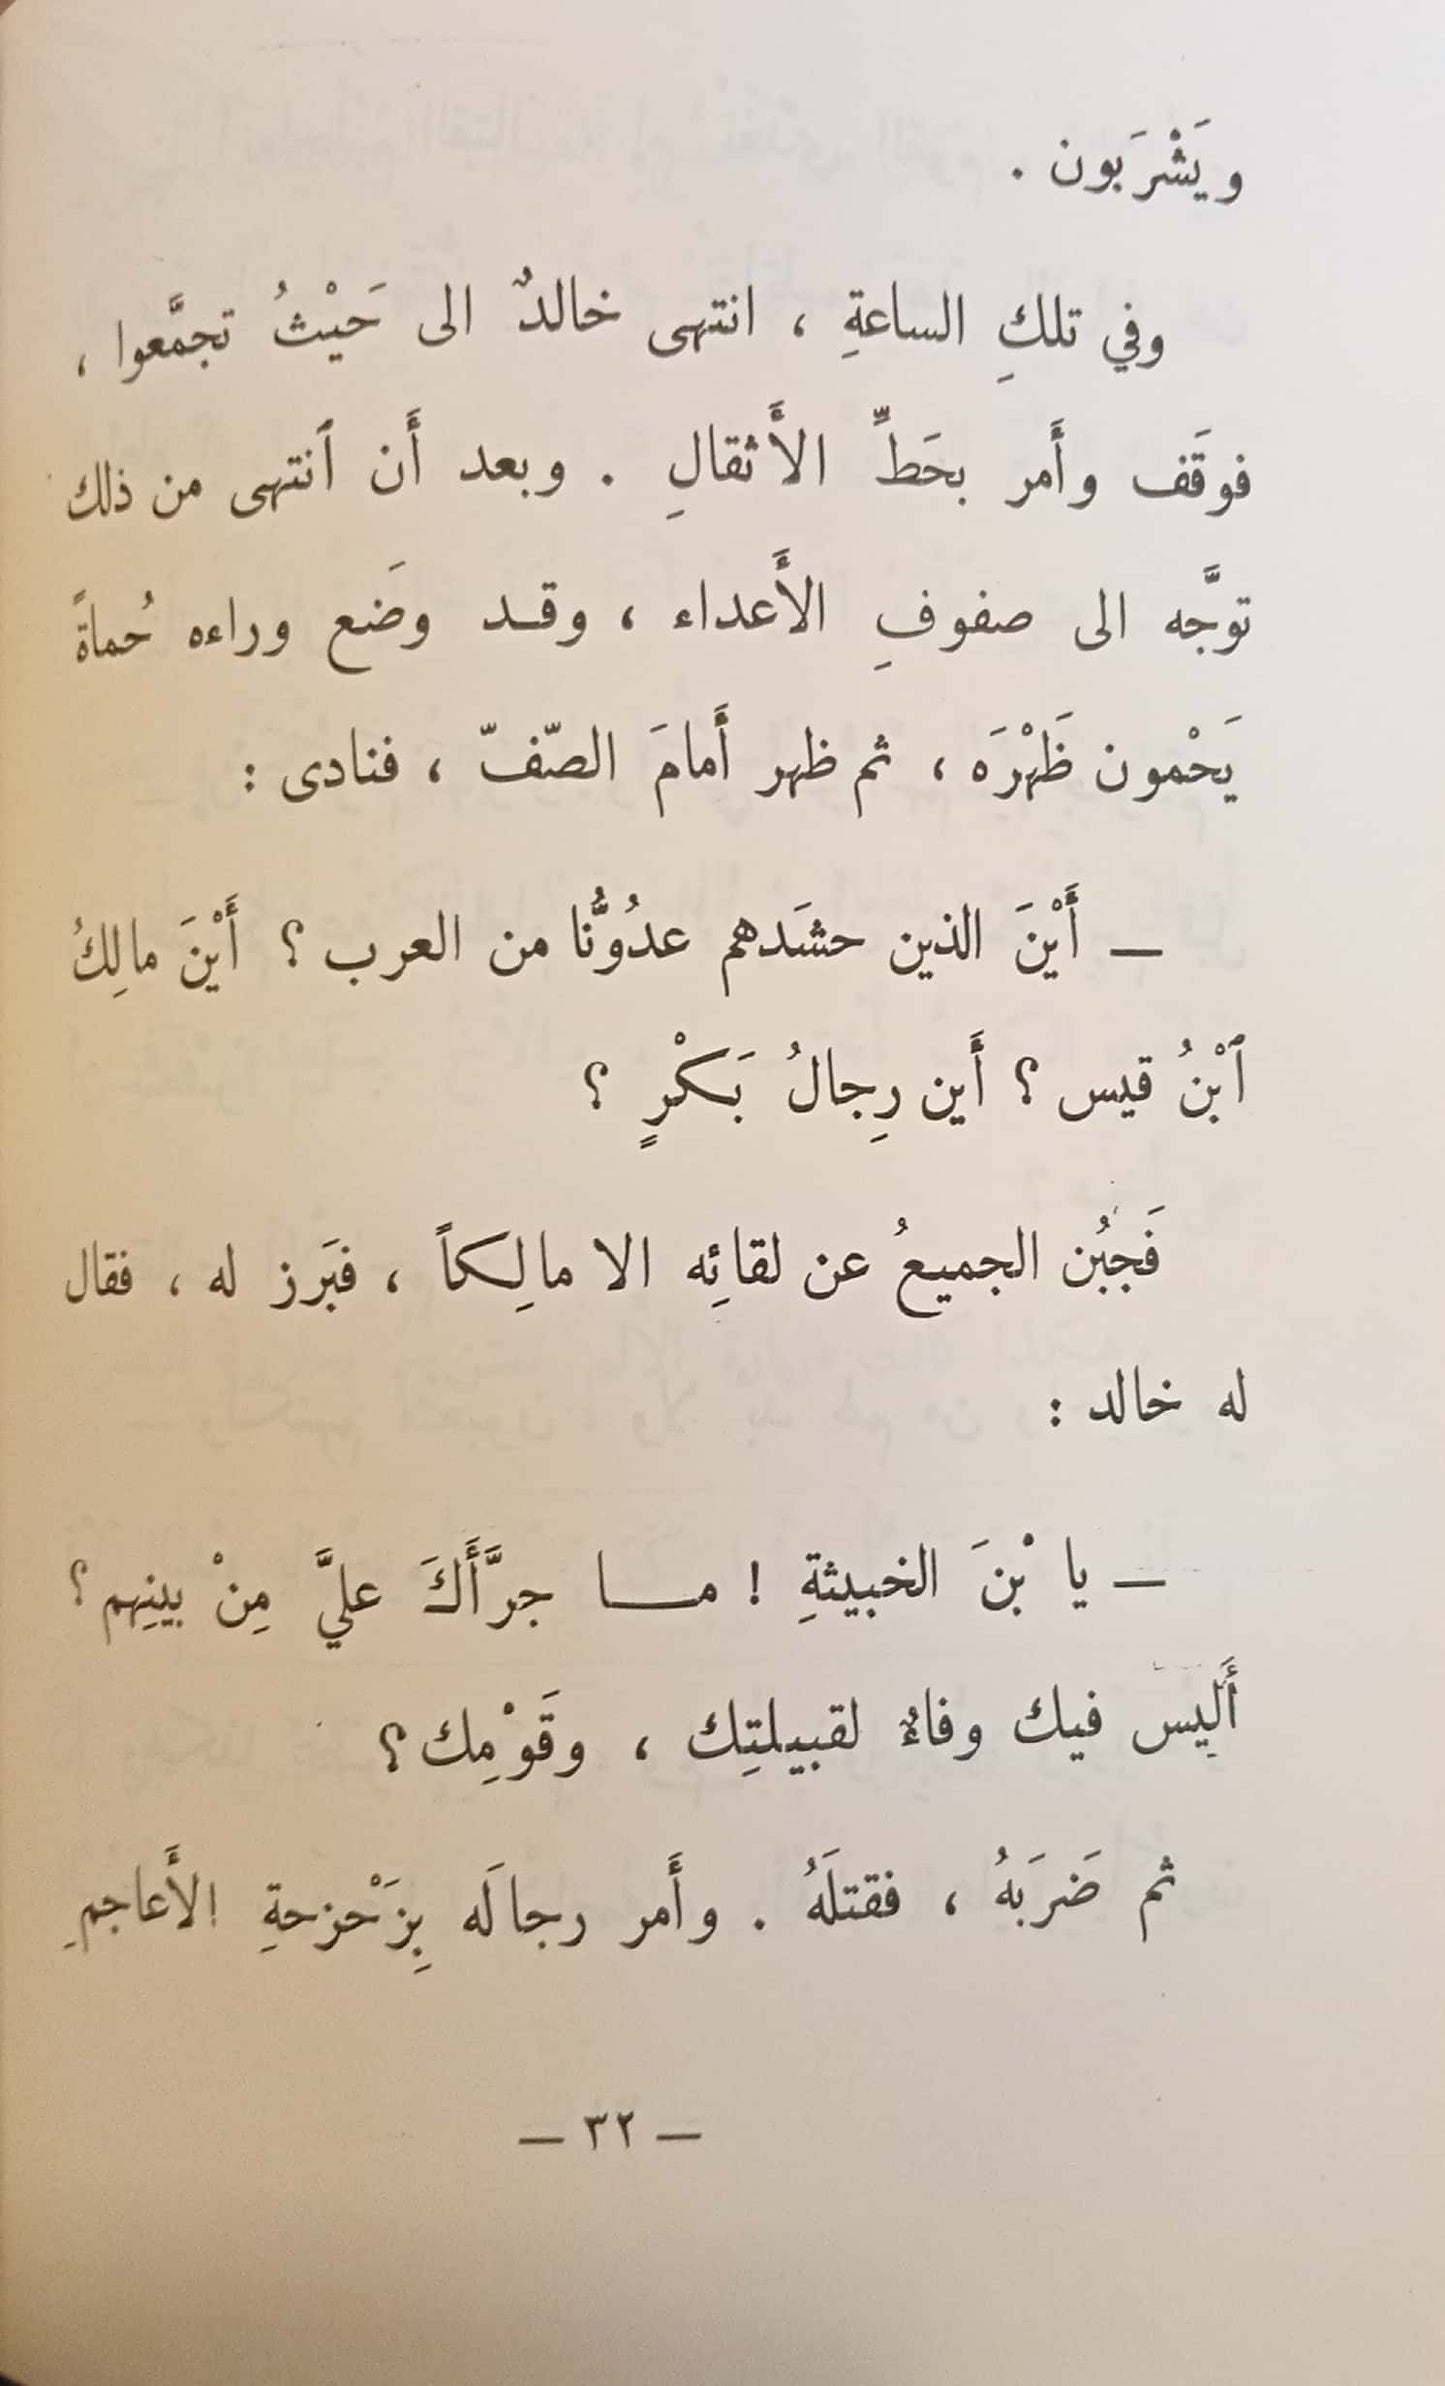 ويَشْرَبون .
وفي تلكِ الساعةِ ، انتهى خالدٌ الى حَيْثُ تجمَّعوا ،
فوقَف وأَمر بحَطِّ الأَثقالِ . وبعد أَن ٱنتهى من ذلك
توجَّه الى صفوفِ الأَعداء ، وقد وضَع وراءه حُماةً
يَحْمون ظَهْرَه ، ثم ظهر أَمامَ الصّفّ ، فنادى :
— أَيْنَ الذين حشَدهم عدُوُّنا من العرب ؟ أَيْنَ مالِكُ
ٱبْنُ قيس ؟ أَين رِجالُ بَكْرٍ ؟
فَجبُن الجميعُ عن لقائِه الا مالِكاً ، فبَرز له ، فقال
له خالد :
— يا بْنَ الخبيثةِ ! ما جرَّأَكَ عليَّ مِنْ بينِهم ؟
أَليس فيك وفاءٌ لقبيلتِك ، وقَوْمِك ؟
ثم ضَرَبهُ ، فقتلَهُ . وأَمر رجالَه بِزَحْزحةِ الأَعاجمِ
— ٣٢ —